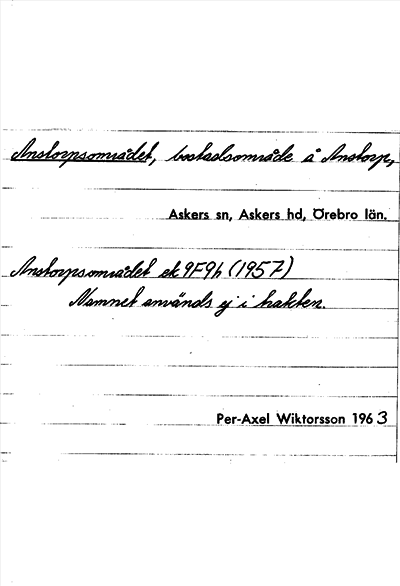 Anstorpsområdet, bostadsområde å Anstorp,
Askers sn, Askers hd, Örebro län.
Anstorpsområdet ek 9F9h (1957)
Namnet används ej i trakten.
Per-Axel Wiktorsson 1963